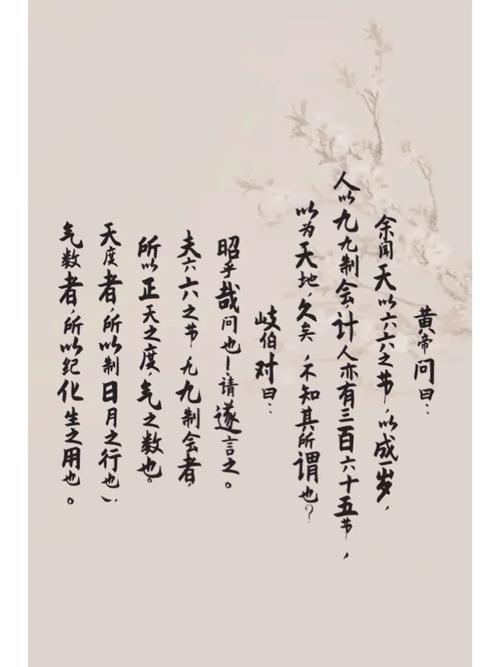 黄帝问曰：
余闻天以六六之节，以成一岁，
人以九九制会，计人亦有三百六十五节，
以为天地，久矣，不知其所谓也？
岐伯对曰：
昭乎哉问也！请遂言之。
夫六六之节，九九制会者，
所以正天之度，气之数也。
天度者，所以制日月之行也；
气数者，所以纪化生之用也。